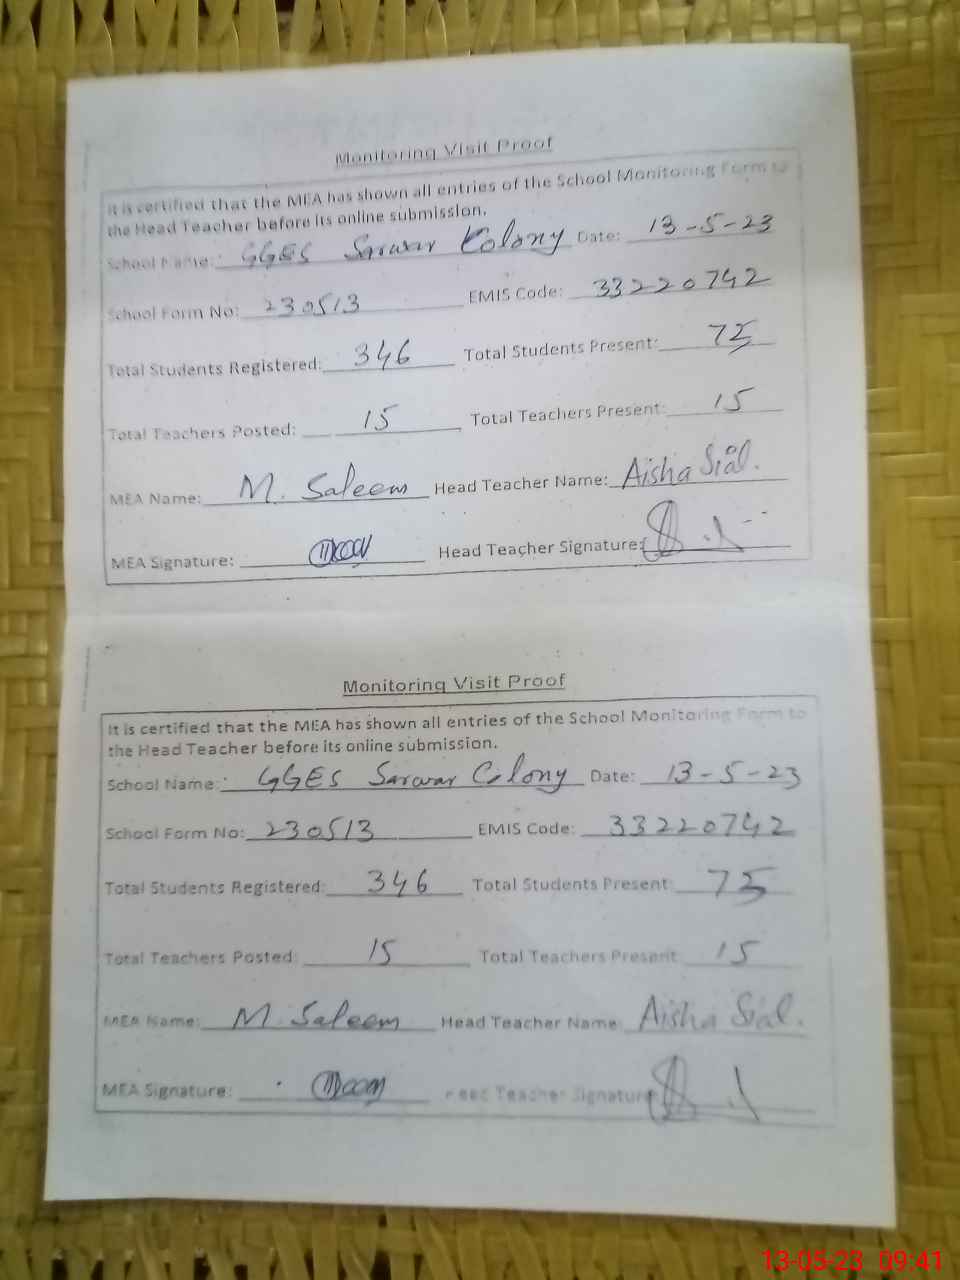 Monitoring Visit Proof
It is certified that the MEA has shown all entries of the School Monitoring Form to
the Head Teacher before its online submission.
School Name: GGES Sarwar Colony Date: 13-5-23
School Form No: 230513 EMIS Code: 33220742
Total Students Registered: 346 Total Students Present: 75
Total Teachers Posted: 15 Total Teachers Present: 15
MEA Name: M. Saleem Head Teacher Name: Aisha Sial.
MEA Signature: Head Teacher Signature:
Monitoring Visit Proof
It is certified that the MEA has shown all entries of the School Monitoring Form to
the Head Teacher before its online submission.
School Name: GGES Sarwar Colony Date: 13-5-23
School Form No: 230513 EMIS Code: 33220742
Total Students Registered: 346 Total Students Present: 75
Total Teachers Posted: 15 Total Teachers Present: 15
MEA Name: M. Saleem Head Teacher Name: Aisha Sial.
MEA Signature: Head Teacher Signature:
13-05-23 09:41